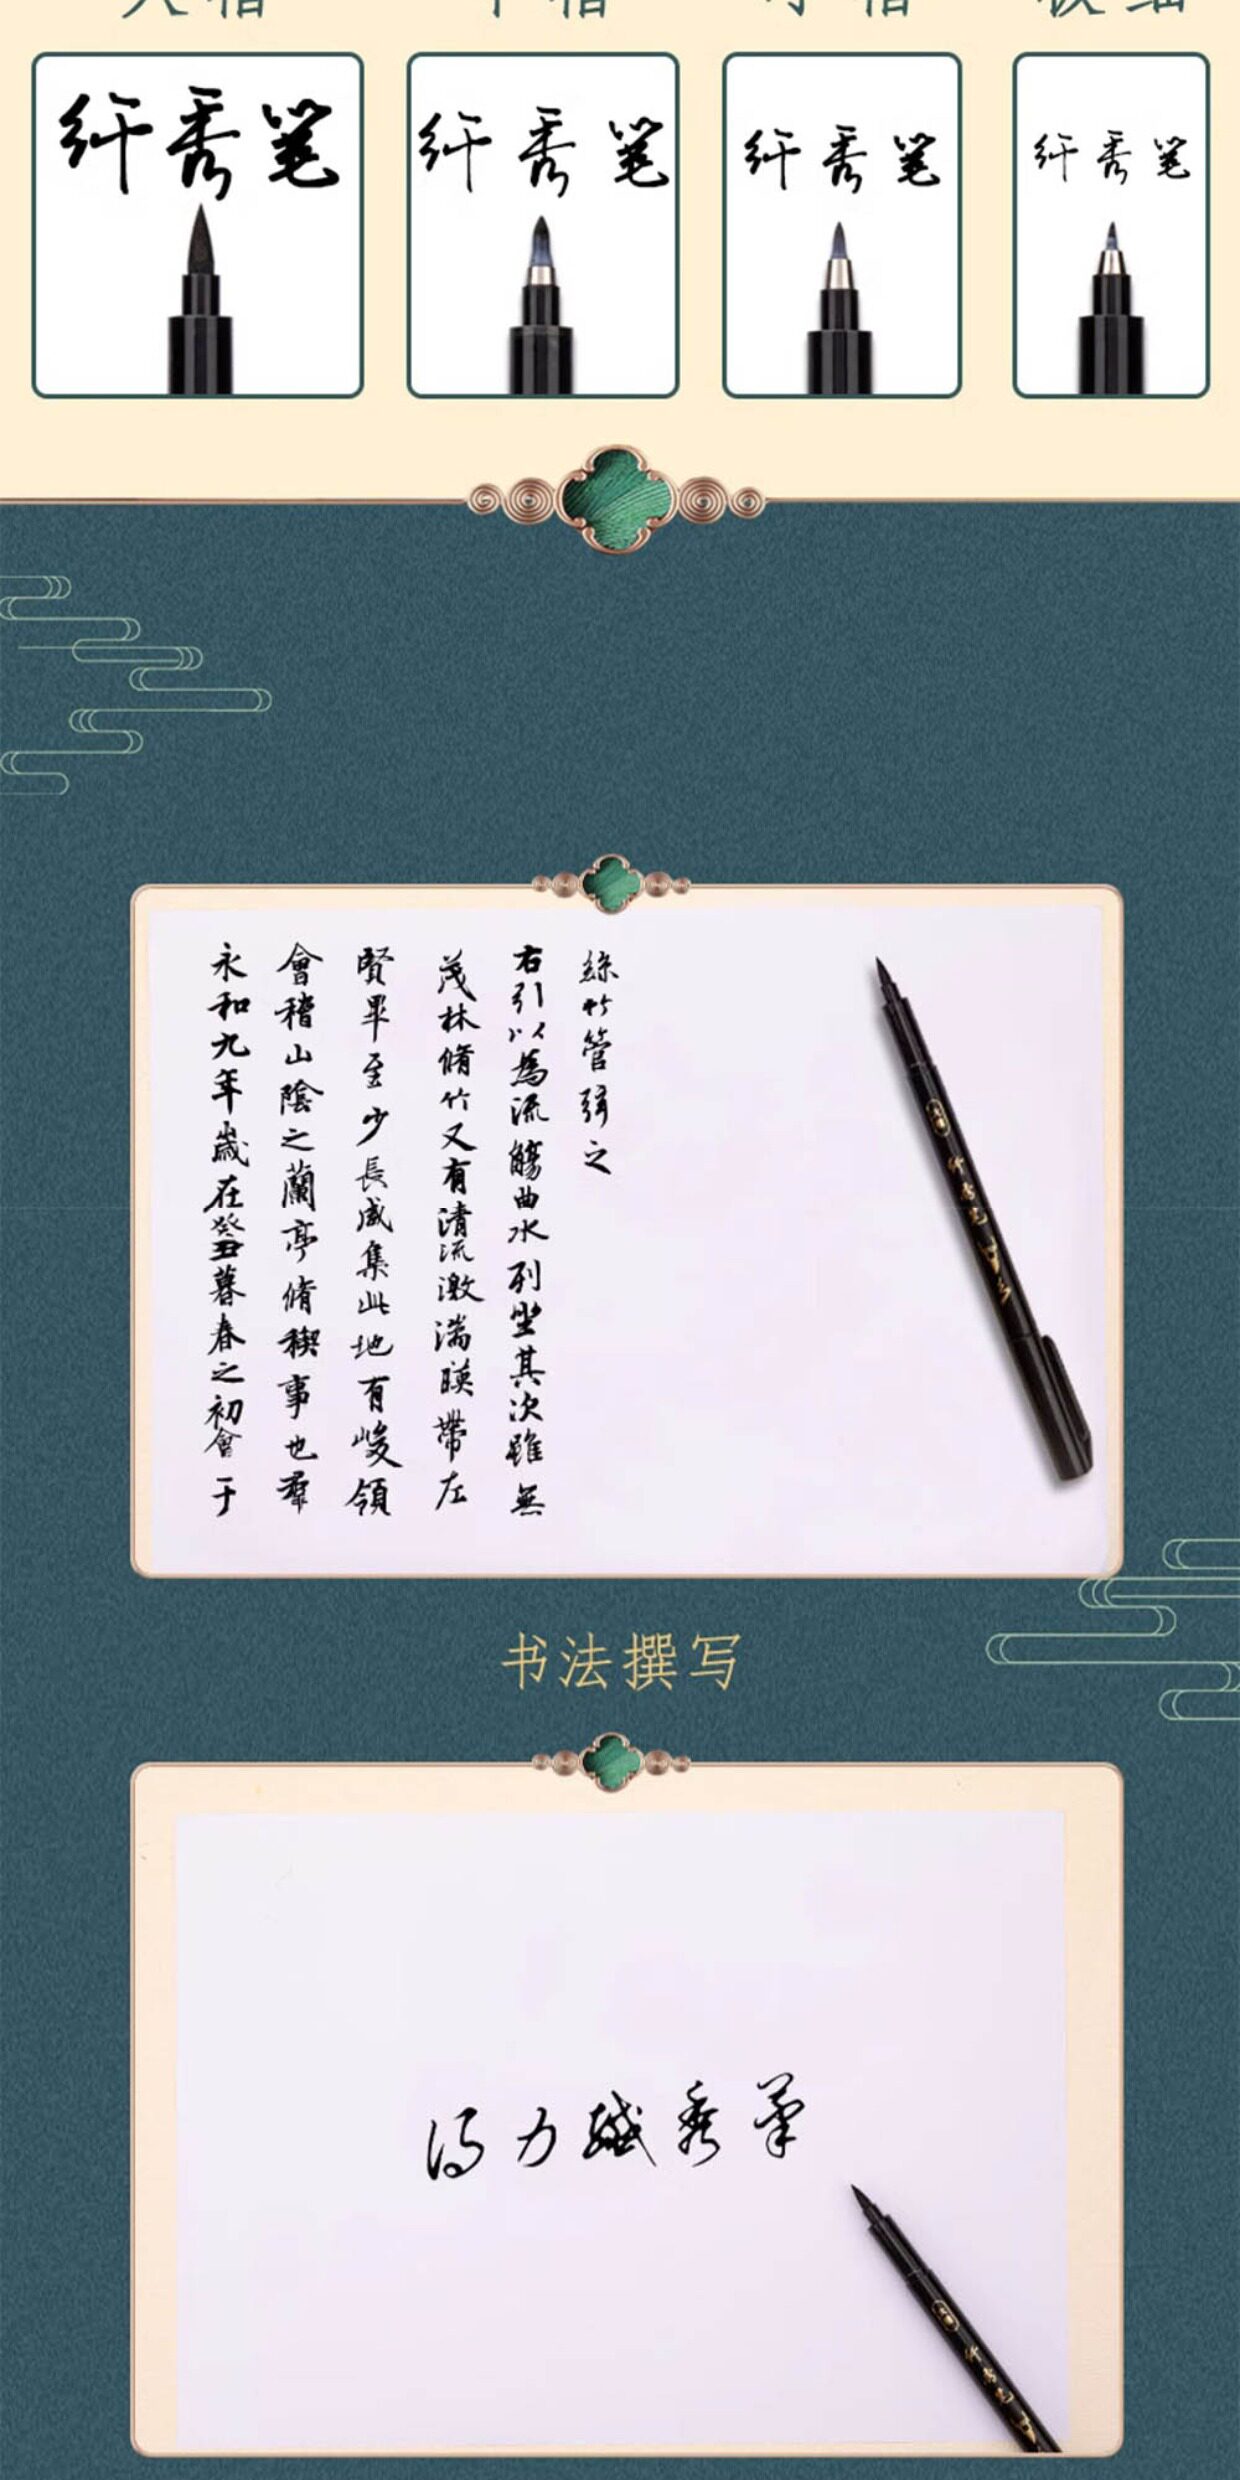 大楷 中楷 小楷 极细
纤秀笔
纤秀笔
纤秀笔
纤秀笔
永和九年歲在癸丑暮春之初會于
會稽山陰之蘭亭脩稧事也羣
賢畢至少長咸集此地有峻領
茂林脩竹又有清流激湍暎帶左
右引以為流觴曲水列坐其次雖無
絲竹管弦之
纤秀笔
书法撰写
得力纖秀筆
纤秀笔